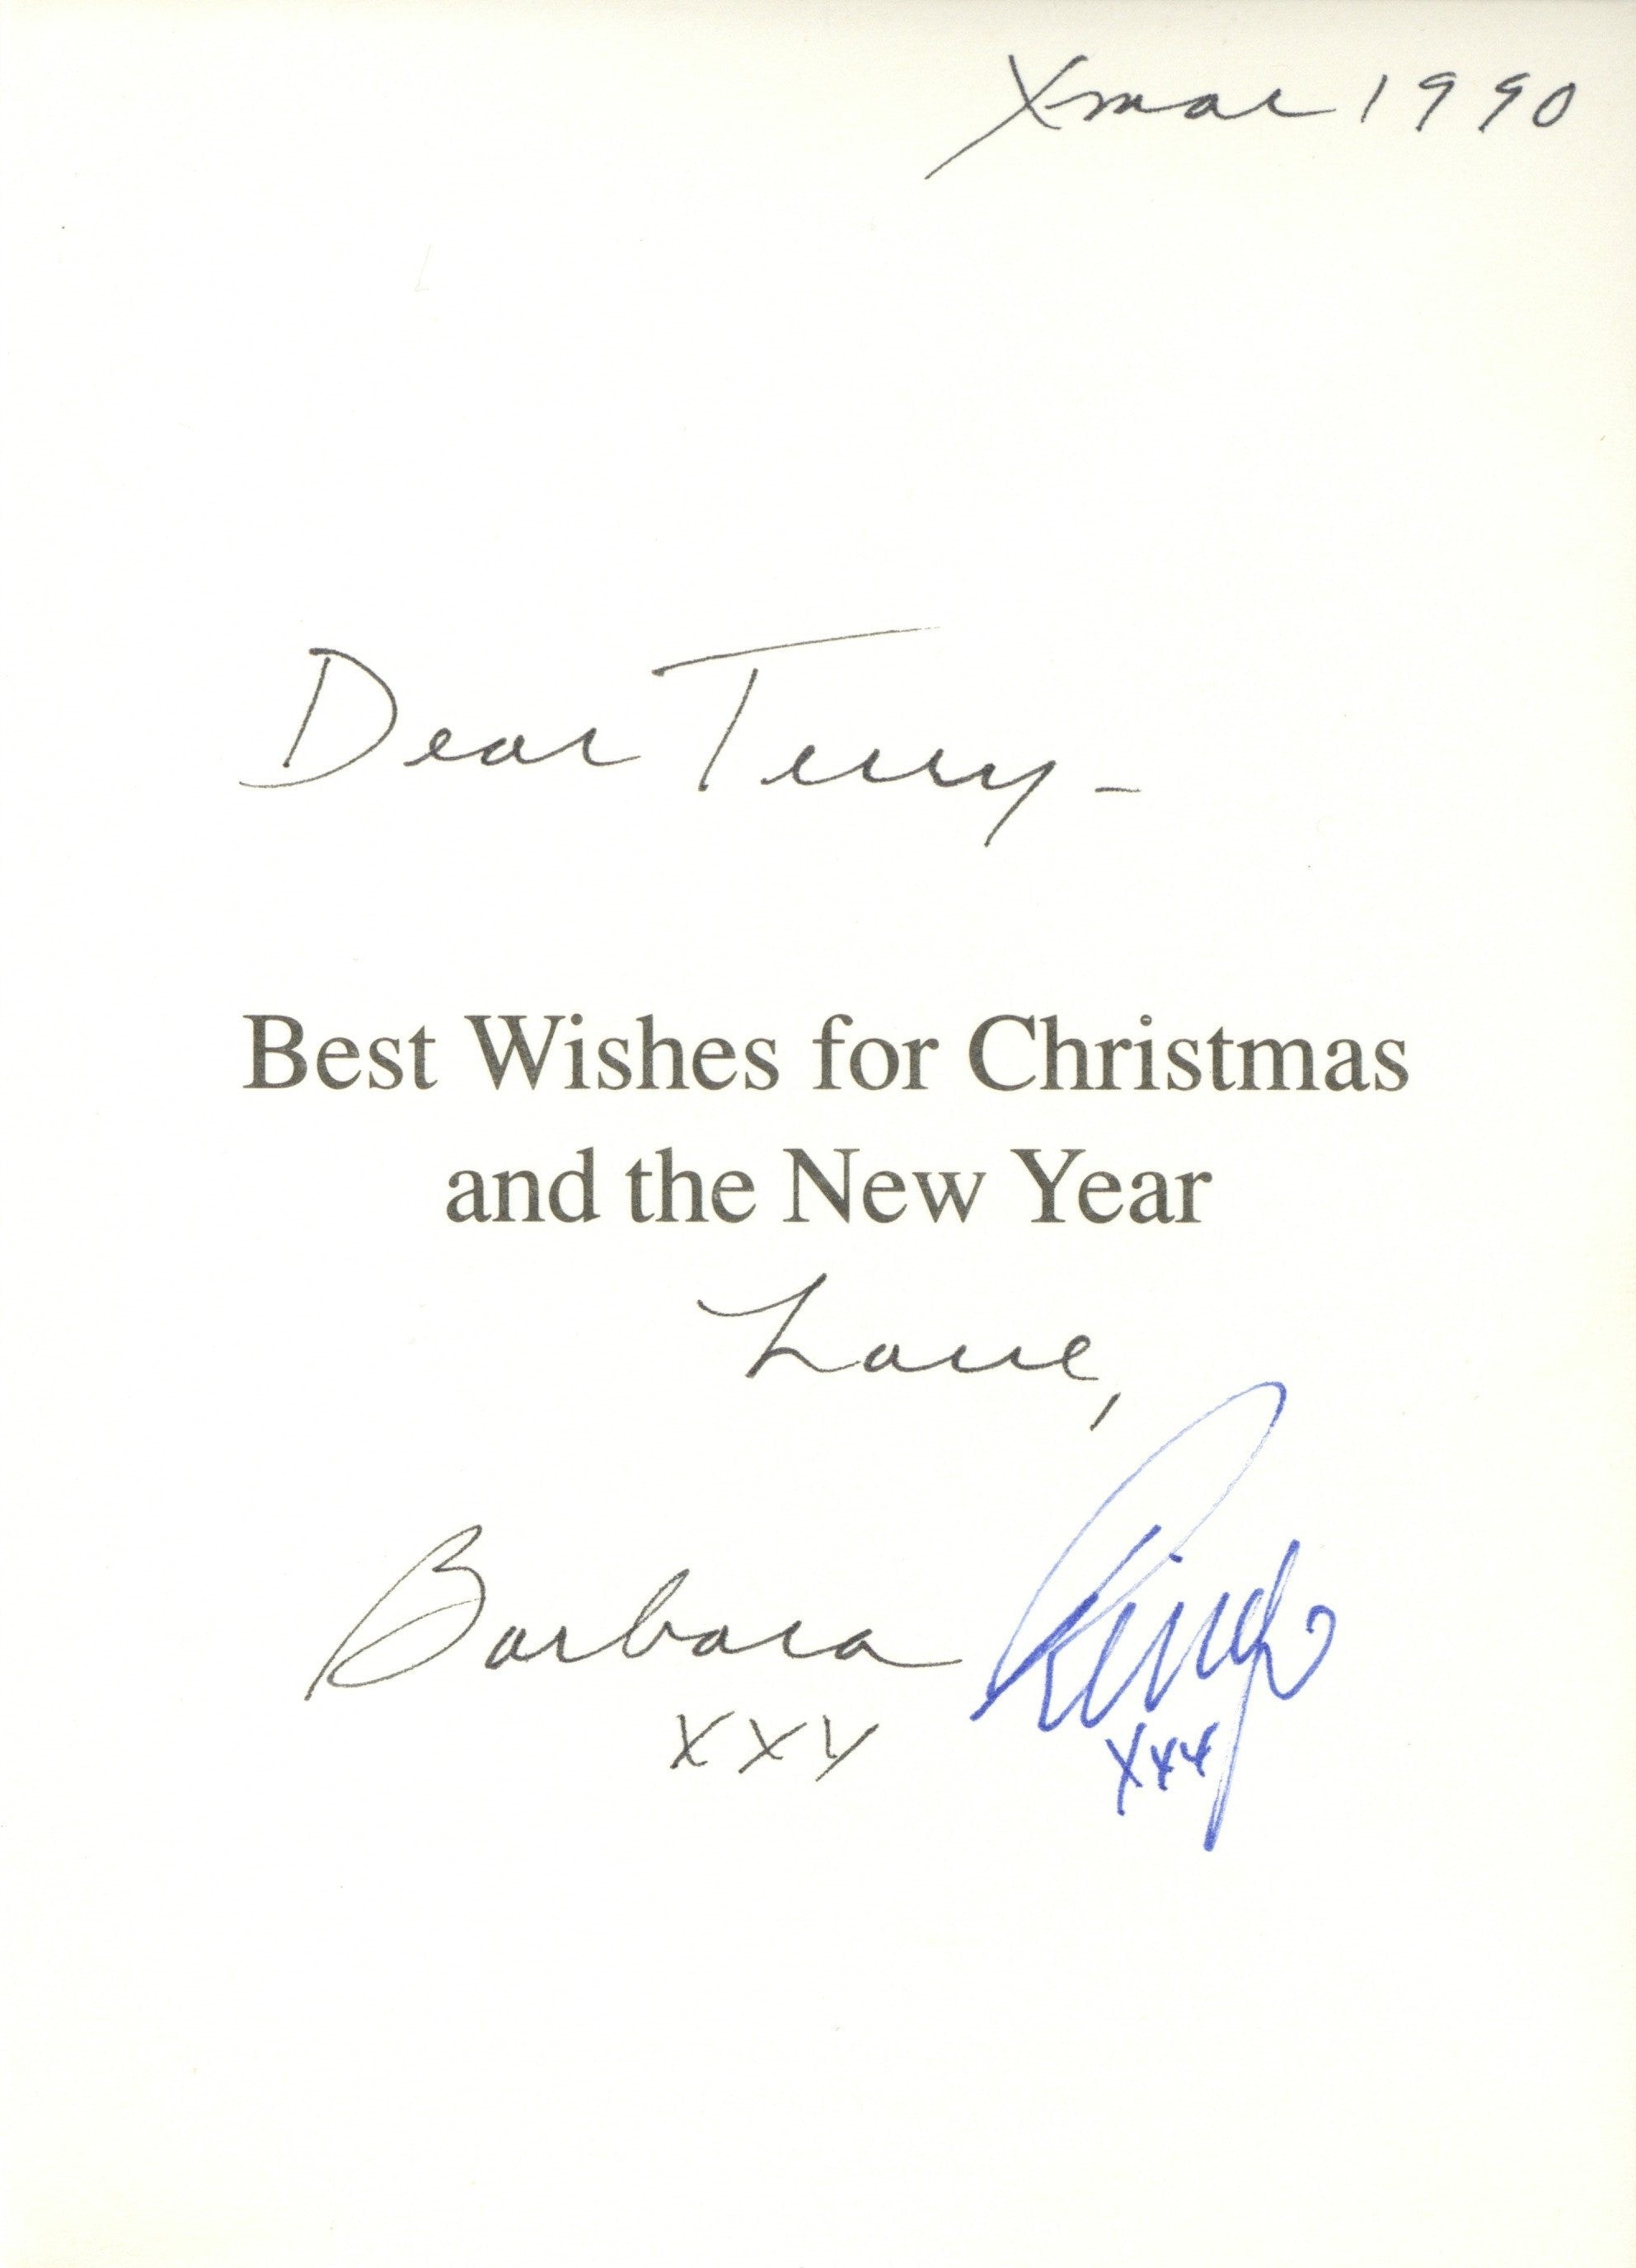 Xmas 1990
Dear Terry -
Best Wishes for Christmas
and the New Year
Love,
Barbara Ringo
xxx xxx